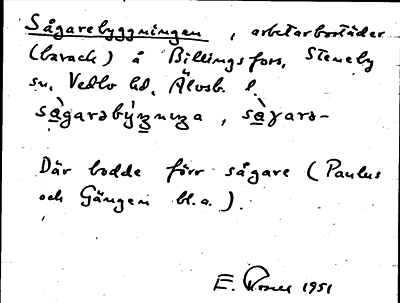 Sågarebyggningen, arbetarbostäder
(barack) å Billingsfors, Steneby
sn, Vedbo hd, Älvsb. l.
Där bodde förr sågare (Paulus
och Gängen bl.a.).
E. 1951